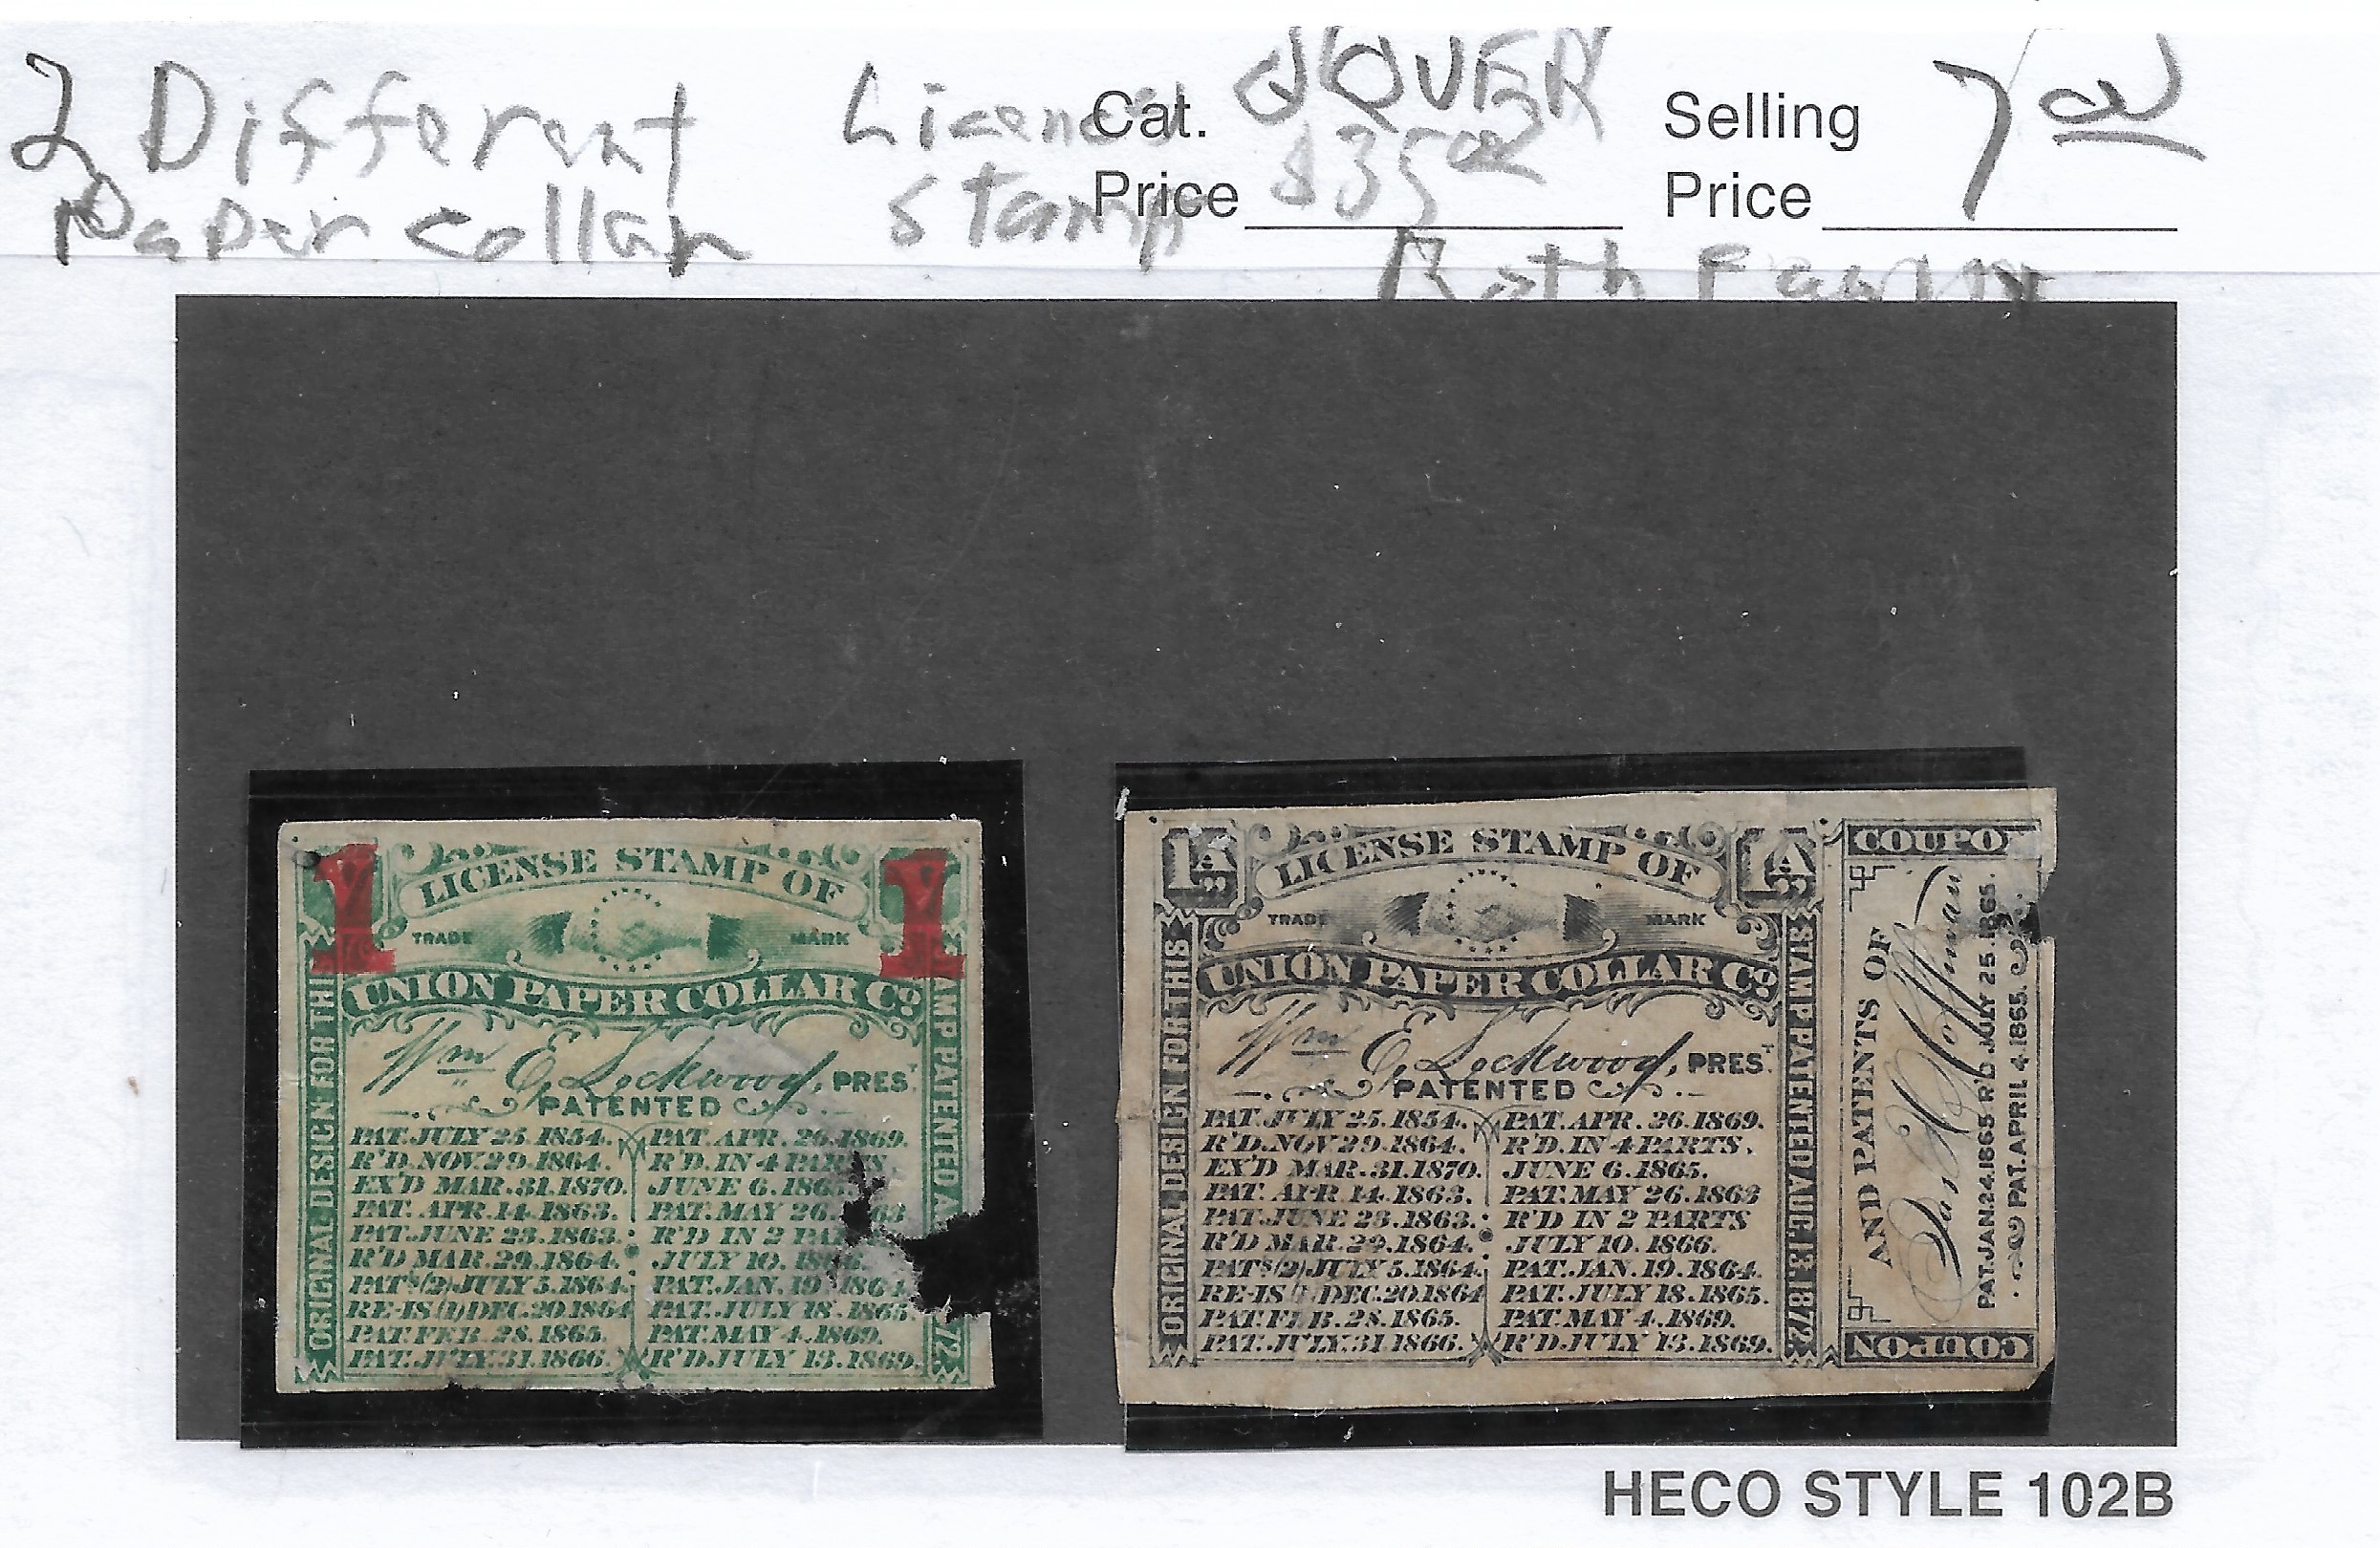 2 Different License Cat. OVER Selling 7 00
Paper collar Stamp Price $35 00 Price
Both Faulty
1 LICENSE STAMP OF 1
TRADE MARK
UNION PAPER COLLAR Co.
Wm E. Lockwood, PREST
PATENTED
PAT. JULY 25. 1854. PAT. APR. 26. 1869.
R'D. NOV. 29. 1864. R'D. IN 4 PARTS,
EX'D MAR. 31. 1870. JUNE 6. 1865.
PAT. APR. 14. 1863. PAT. MAY 26. 63
PAT. JUNE 23. 1863. R'D IN 2 PAR
R'D MAR. 29. 1864. JULY 10. 1866.
PATS (2) JULY 5. 1864. PAT. JAN. 19. 1864
RE-IS (1) DEC. 20. 1864 PAT. JULY 18. 1865.
PAT. FEB. 28. 1865. PAT. MAY 4. 1869.
PAT. JULY. 31. 1866. R'D. JULY 13. 1869.
ORIGINAL DESIGN FOR THIS
AMP PATENTED A 72
1A LICENSE STAMP OF 1A
TRADE MARK
UNION PAPER COLLAR Co.
Wm E. Lockwood, PREST
PATENTED
PAT. JULY 25. 1854. PAT. APR. 26. 1869.
R'D. NOV 29. 1864. R'D. IN 4 PARTS,
EX'D MAR. 31. 1870. JUNE 6. 1865.
PAT. APR. 14. 1863. PAT. MAY 26. 1863
PAT. JUNE 23. 1863. R'D IN 2 PARTS
R'D MAR. 29. 1864. JULY 10. 1866.
PATS (2) JULY 5. 1864. PAT. JAN. 19. 1864.
RE-IS (1) DEC. 20. 1864 PAT. JULY 18. 1865.
PAT. FEB. 28. 1865. PAT. MAY 4. 1869.
PAT. JULY. 31. 1866. R'D. JULY 13. 1869.
ORIGINAL DESIGN FOR THIS
STAMP PATENTED AUG. 13. 1872
COUPO
AND PATENTS OF
Hoffman
PAT. JAN. 24. 1865 R'D JULY 25. 1865.
PAT. APRIL 4. 1865.
COUPON
HECO STYLE 102B